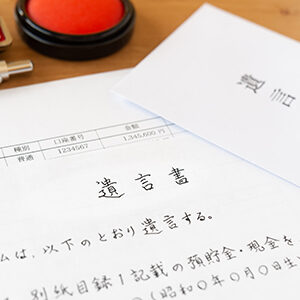 種別 口座番号 金額
普通 1234567 1,345,600円
遺言書
ムは、以下のとおり遺言する。
別紙目録1記載の預貯金・現金を
(昭和〇年〇月〇日生
遺言